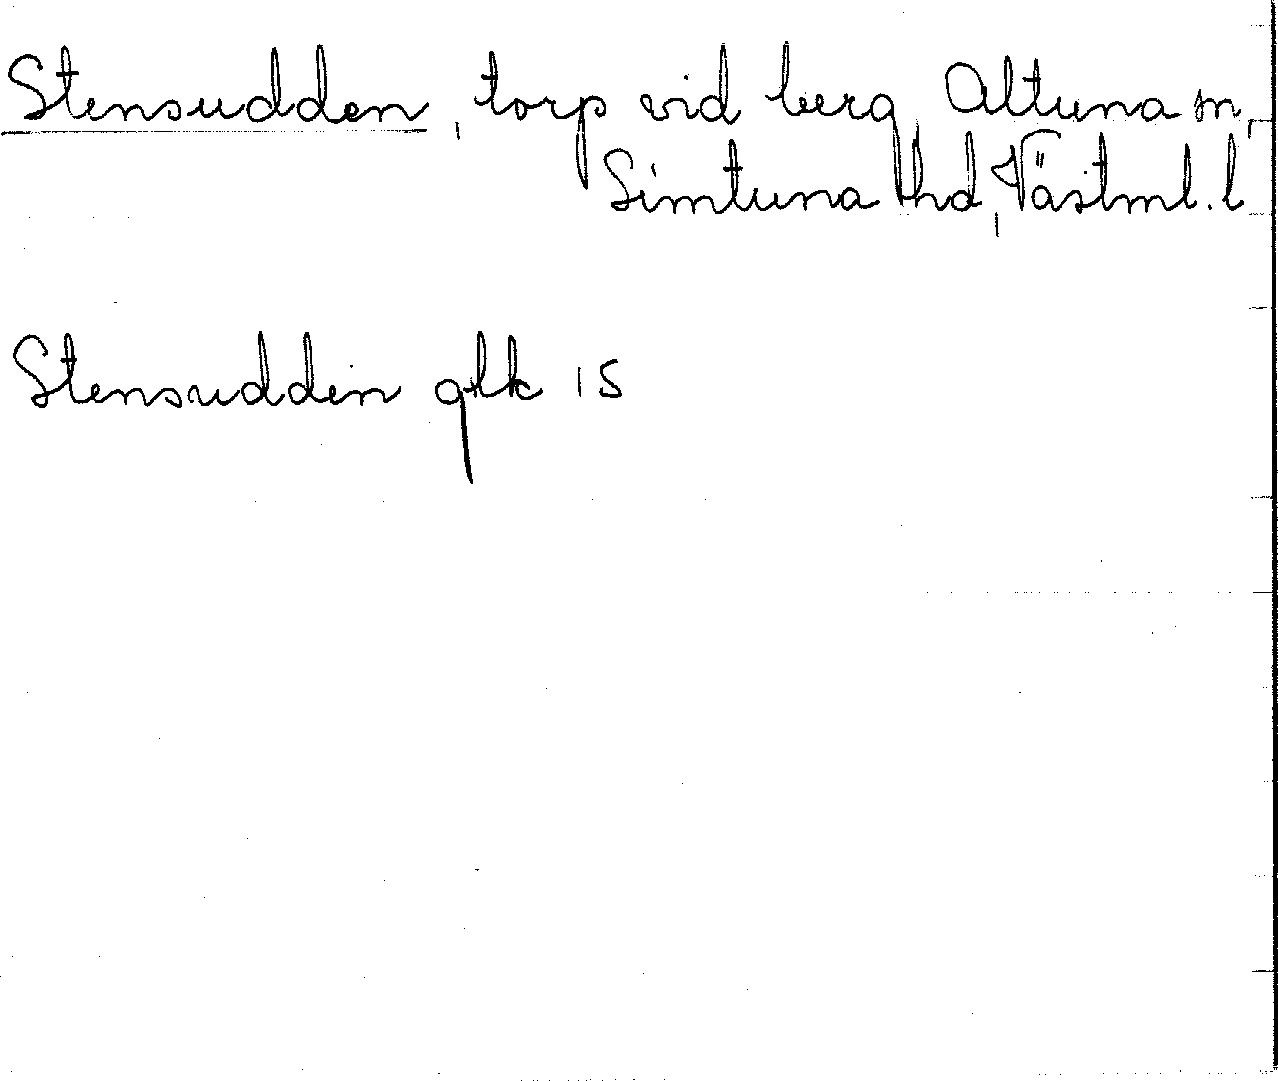 Stensudden, torp vid berg Altuna sn,
Simtuna hd, Västml. l
Stensudden glk 15